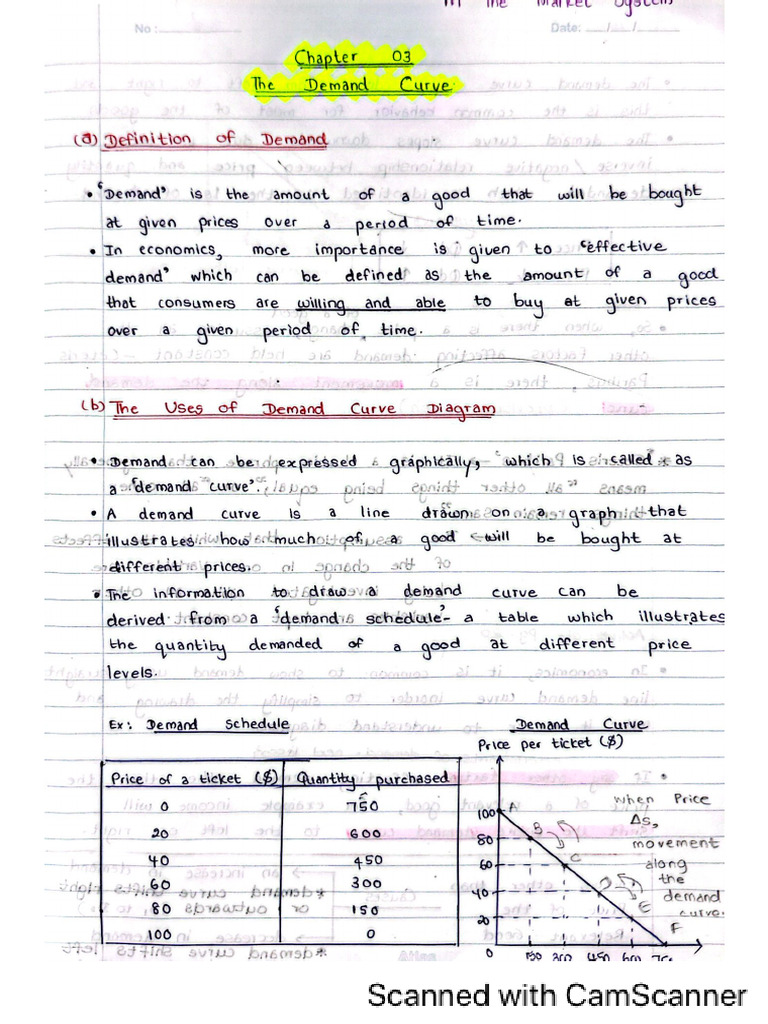 in the Market System
No :
Date:
Chapter 03
The Demand Curve
(a) Definition of Demand
• 'Demand' is the amount of a good that will be bought
at given prices over a period of time.
• In economics, more importance is given to 'effective
demand' which can be defined as the amount of a good
that consumers are willing and able to buy at given prices
over a given period of time.
(b) The Uses of Demand Curve Diagram
• Demand can be expressed graphically, which is called as
a 'demand curve'.
• A demand curve is a line drawn on a graph that
illustrates how much of a good will be bought at
different prices.
• The information to draw a demand curve can be
derived from a 'demand schedule'- a table which illustrates
the quantity demanded of a good at different price
levels.
Ex: Demand Schedule
Price of a ticket ($) Quantity purchased
0 750
20 600
40 450
60 300
80 150
100 0
Demand Curve
Price per ticket ($)
100 A
80 B
60 C
40 D
20 E
F
0 150 300 450 600 750
when Price
Δs,
movement
along
the
demand
curve.
Scanned with CamScanner